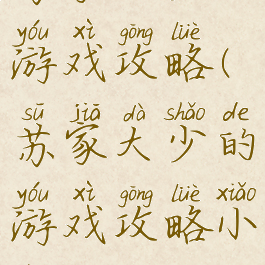 yóu xì gōng lüè
游戏攻略(
sū jiā dà shǎo de
苏家大少的
yóu xì gōng lüè xiǎo
游戏攻略小